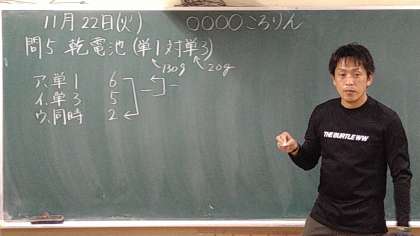 11月22日(火) 〇〇〇〇ころりん
問5 乾電池(単1対単3)
130g 20g
ア、単1 6
イ、単3 5
ウ、同時 2
THE BURTLE WW